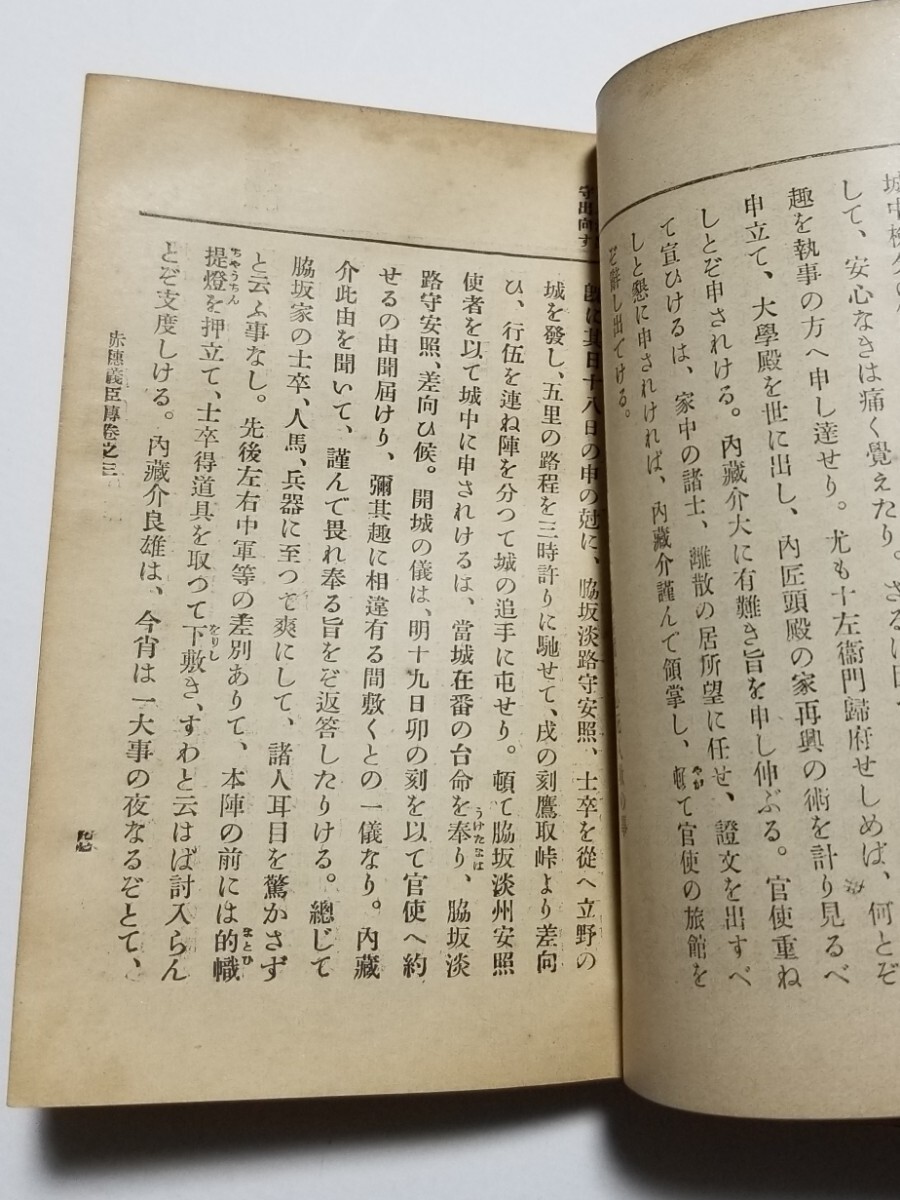 して、安心なきは痛く覺えたり。さるに
趣を執事の方へ申し達せり。尤も十左衞門歸府せしめば、何とぞ
申立て、大學殿を世に出し、內匠頭殿の家再興の術を計り見るべ
しとぞ申されける。內藏介大に有難き旨を申し伸ぶる。官使重ね
て宣ひけるは、家中の諸士、離散の居所望に任せ、證文を出すべ
しと懇に申されければ、內藏介謹んで領掌し、頓て官使の旅館を
ぞ辭し出でける。
守出向す
既に其日十八日の申の尅に、脇坂淡路守安照、士卒を從へ立野の
城を發し、五里の路程を三時許りに馳せて、戌の刻鷹取峠より差向
ひ、行伍を連ね陣を分つて城の追手に屯せり。頓て脇坂淡州安照
使者を以て城中に申されけるは、當城在番の台命を奉り、脇坂淡
路守安照、差向ひ候。開城の儀は、明十九日卯の刻を以て官使へ約
せるの由聞屆けり、彌其趣に相違有る間敷くとの一儀なり。內藏
介此由を聞いて、謹んで畏れ奉る旨をぞ返答したりける。總じて
脇坂家の士卒、人馬、兵器に至つて爽にして、諸人耳目を驚かさず
と云ふ事なし。先後左右中軍等の差別ありて、本陣の前には的幟
提燈を押立て、士卒得道具を取つて下敷き、すわと云はば討入らん
とぞ支度しける。內藏介良雄は、今宵は一大事の夜なるぞとて、
赤穗義臣傳卷之三